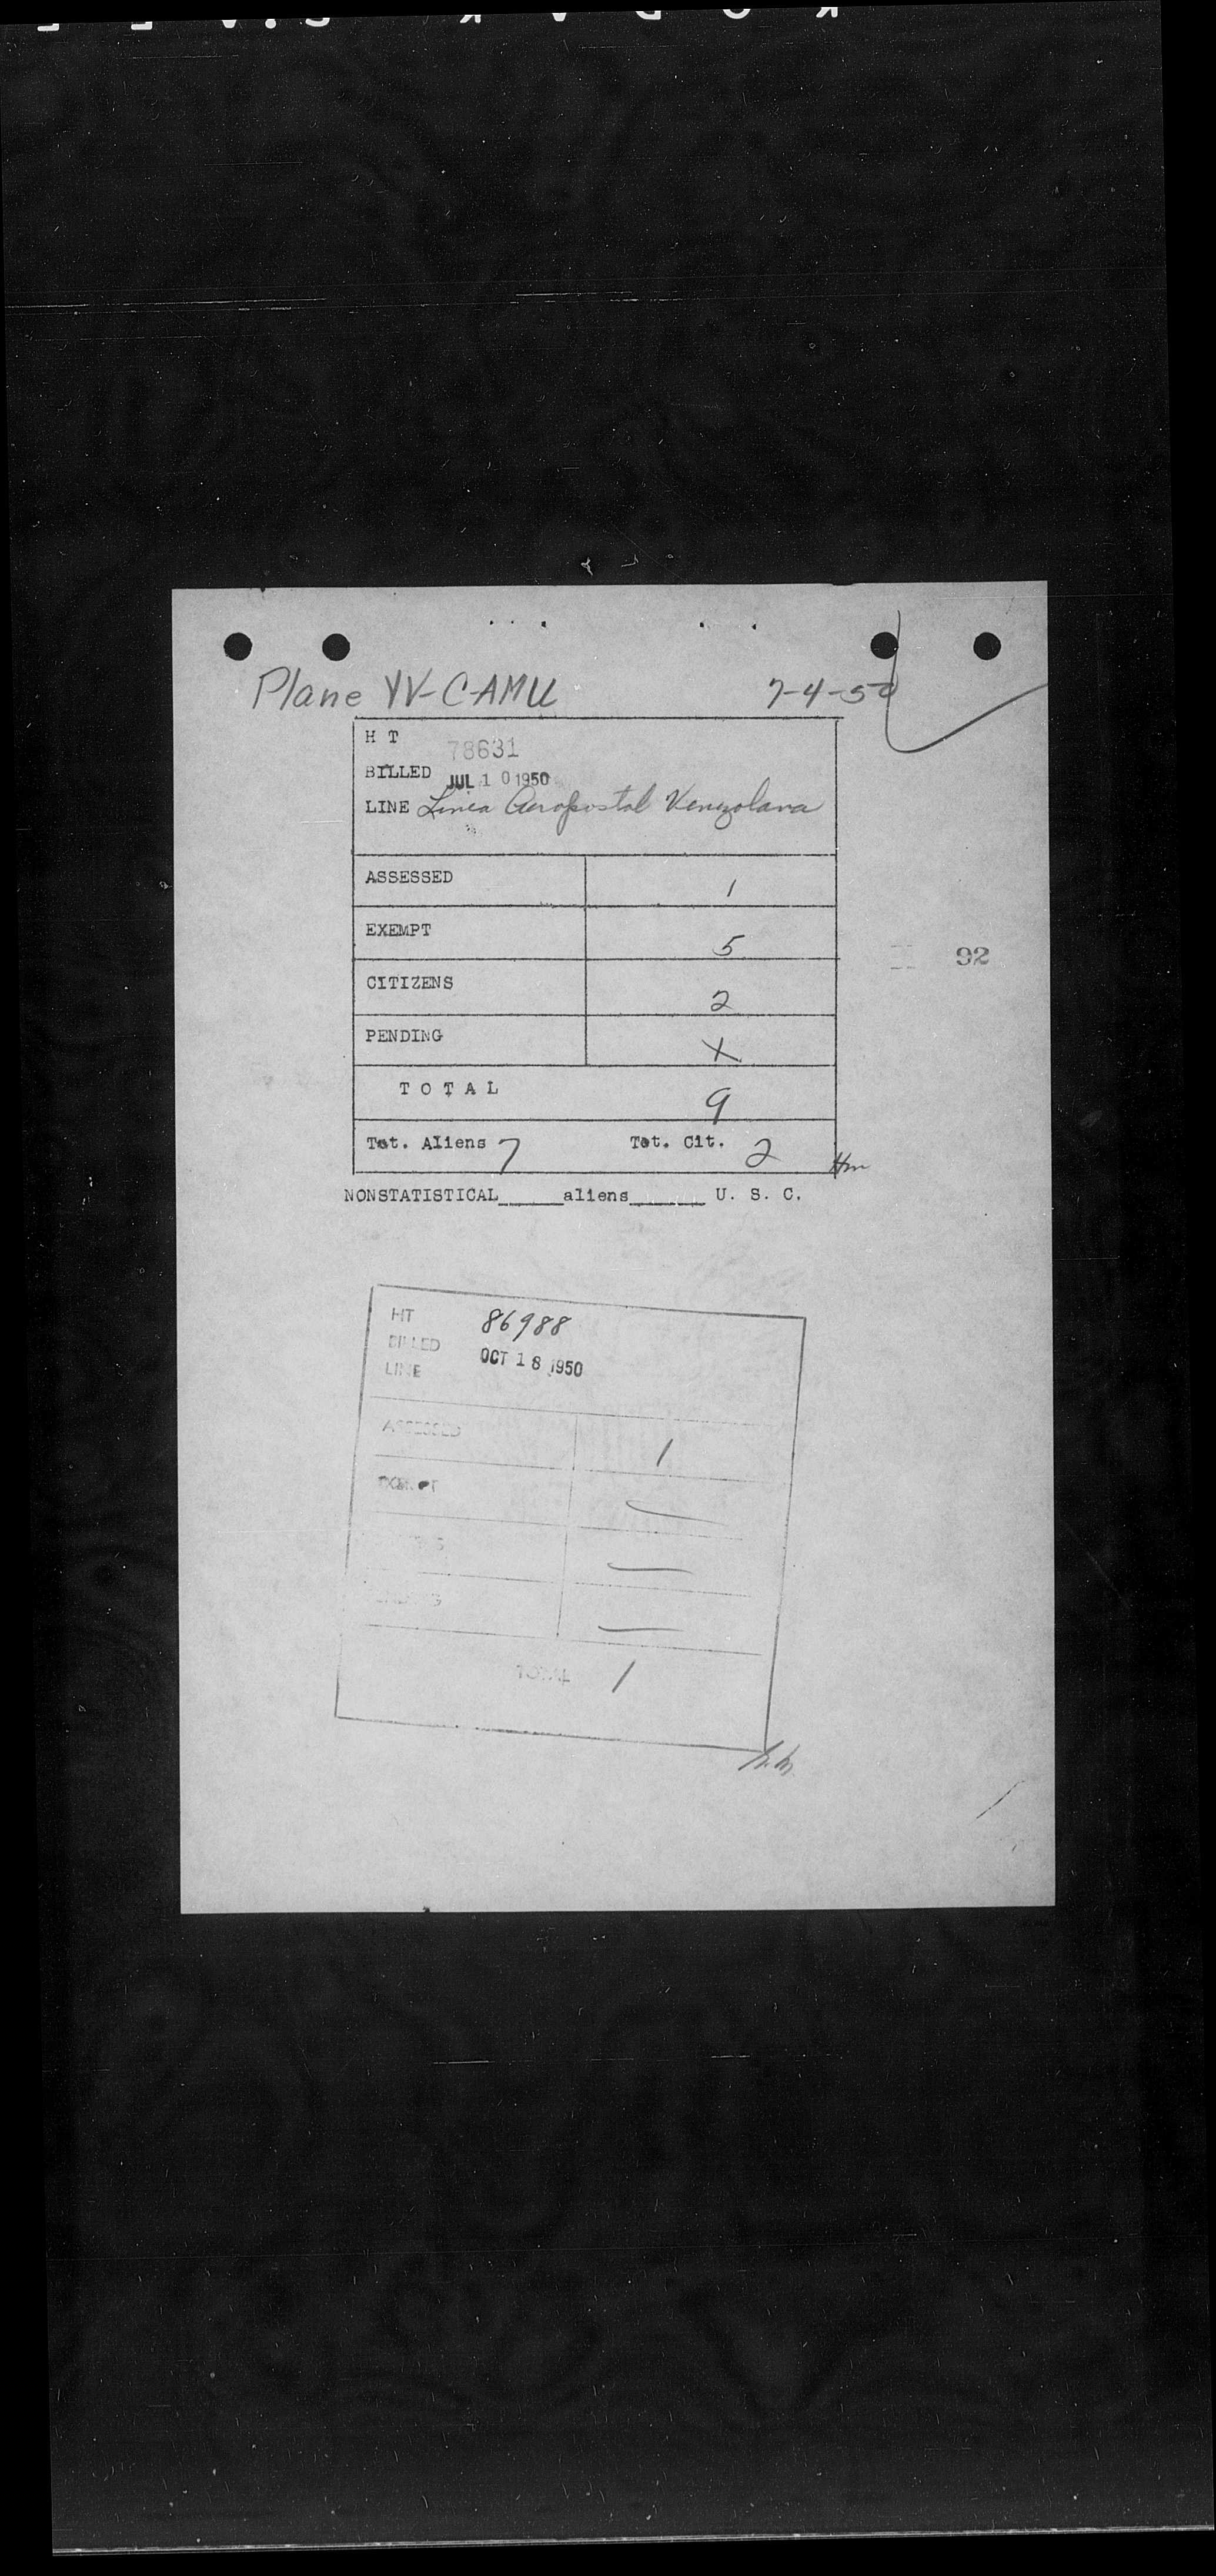 Plane YV-C-AMU 7-4-50
H T 78631
BILLED JUL 10 1950
LINE Linea Aeropostal Venezolana
ASSESSED 1
EXEMPT 5
92
CITIZENS 2
PENDING X
TOTAL 9
Tot. Aliens 7 Tot. Cit. 2
Hm
NONSTATISTICAL_____aliens______ U. S. C.
HT 86988
BILLED OCT 18 1950
LINE
ASSESSED 1
EXEMPT —
—
—
TOTAL 1